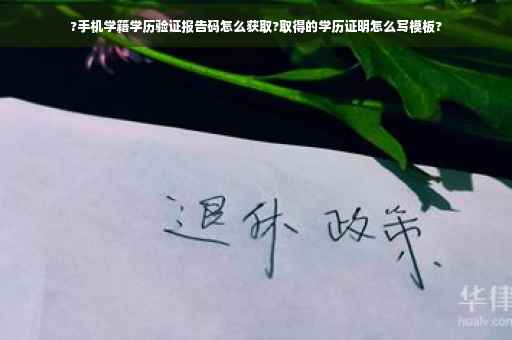 ?手机学籍学历验证报告码怎么获取?取得的学历证明怎么写模板?
退休 政策
华律
hualv.com